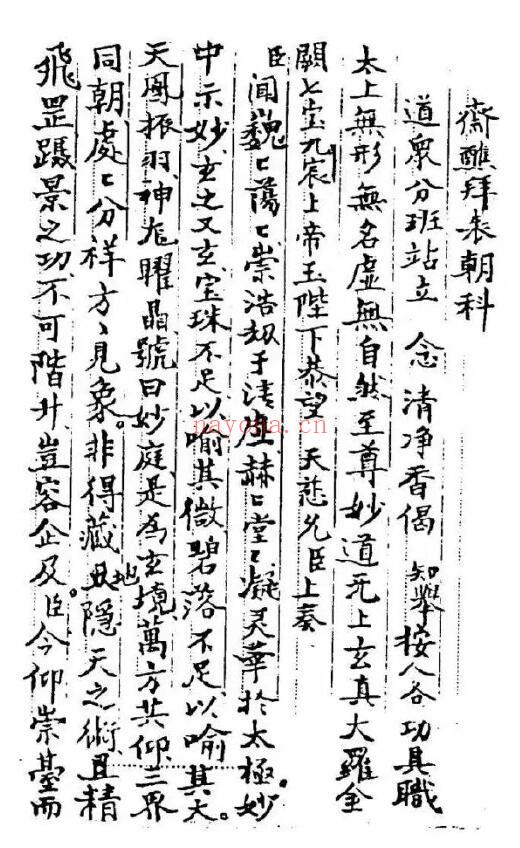 齋醮拜表朝科
道衆分班站立 念清净香偈 知舉按人各功具職
太上無形無名虛無自然至尊妙道无上玄真大羅金
闕七宝九宸上帝玉陛下恭望 天慈允臣上奏
臣聞巍〻蕩〻崇浩刼于清虛赫〻堂〻凝灵華於太極妙
中示妙玄之又玄宝珠不足以喻其微碧落不足以喻其大。
天風振羽神光曜晶號曰妙庭是為玄境萬方共仰三界
同朝處〻分祥方〻見象。非得藏地隱天之術且精
飛罡躡景之功不可階升豈容企及。臣今仰崇臺而
nayona.cn